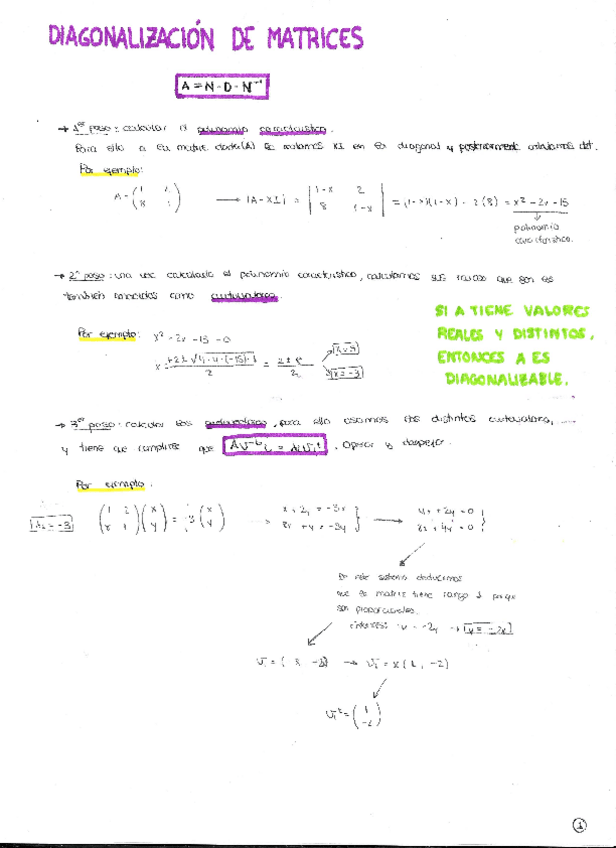 DIAGONALIZACIÓN DE MATRICES
A = N · D · N⁻¹
→ 1er paso: calcular el polinomio característico.
Para ello a la matriz dada (A) le restamos XI en la diagonal y posteriormente calculamos det.
Por ejemplo:
A = (1 2; 8 1) → |A - XI| = |1-x 2; 8 1-x| = (1-x)(1-x) - 2(8) = x² - 2x - 15
polinomio
característico.
→ 2º paso: una vez calculado el polinomio característico, calculamos sus raíces que son
también conocidas como autovalores.
SI A TIENE VALORES
REALES Y DISTINTOS,
ENTONCES A ES
DIAGONALIZABLE.
Por ejemplo: x² - 2x - 15 = 0
→ 3er paso: calcular los autovectores, para ello usamos los distintos autovalores,
y tiene que cumplirse que . Operar y despejar.
Por ejemplo.
λ₂ = -3 (1 2; 8 1)(x; y) = -3(x; y)
x + 2y = -3x
8x + y = -3y
→
4x + 2y = 0
8x + 4y = 0
De este sistema deducimos
que la matriz tiene rango 1 porque
son proporcionales.
→ y = -2x
→ v₁ = x(1, -2)
(1; -2)
1